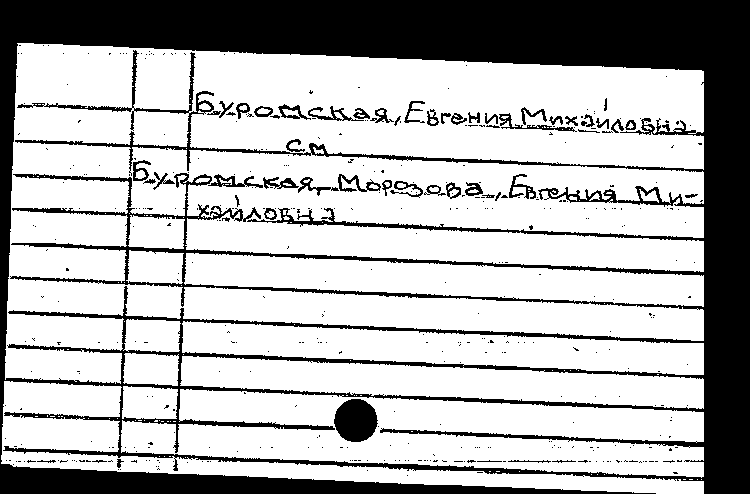 Буромская, Евгения Михайловна
см
Буромская, Морозова, Евгения Ми-
хайловна